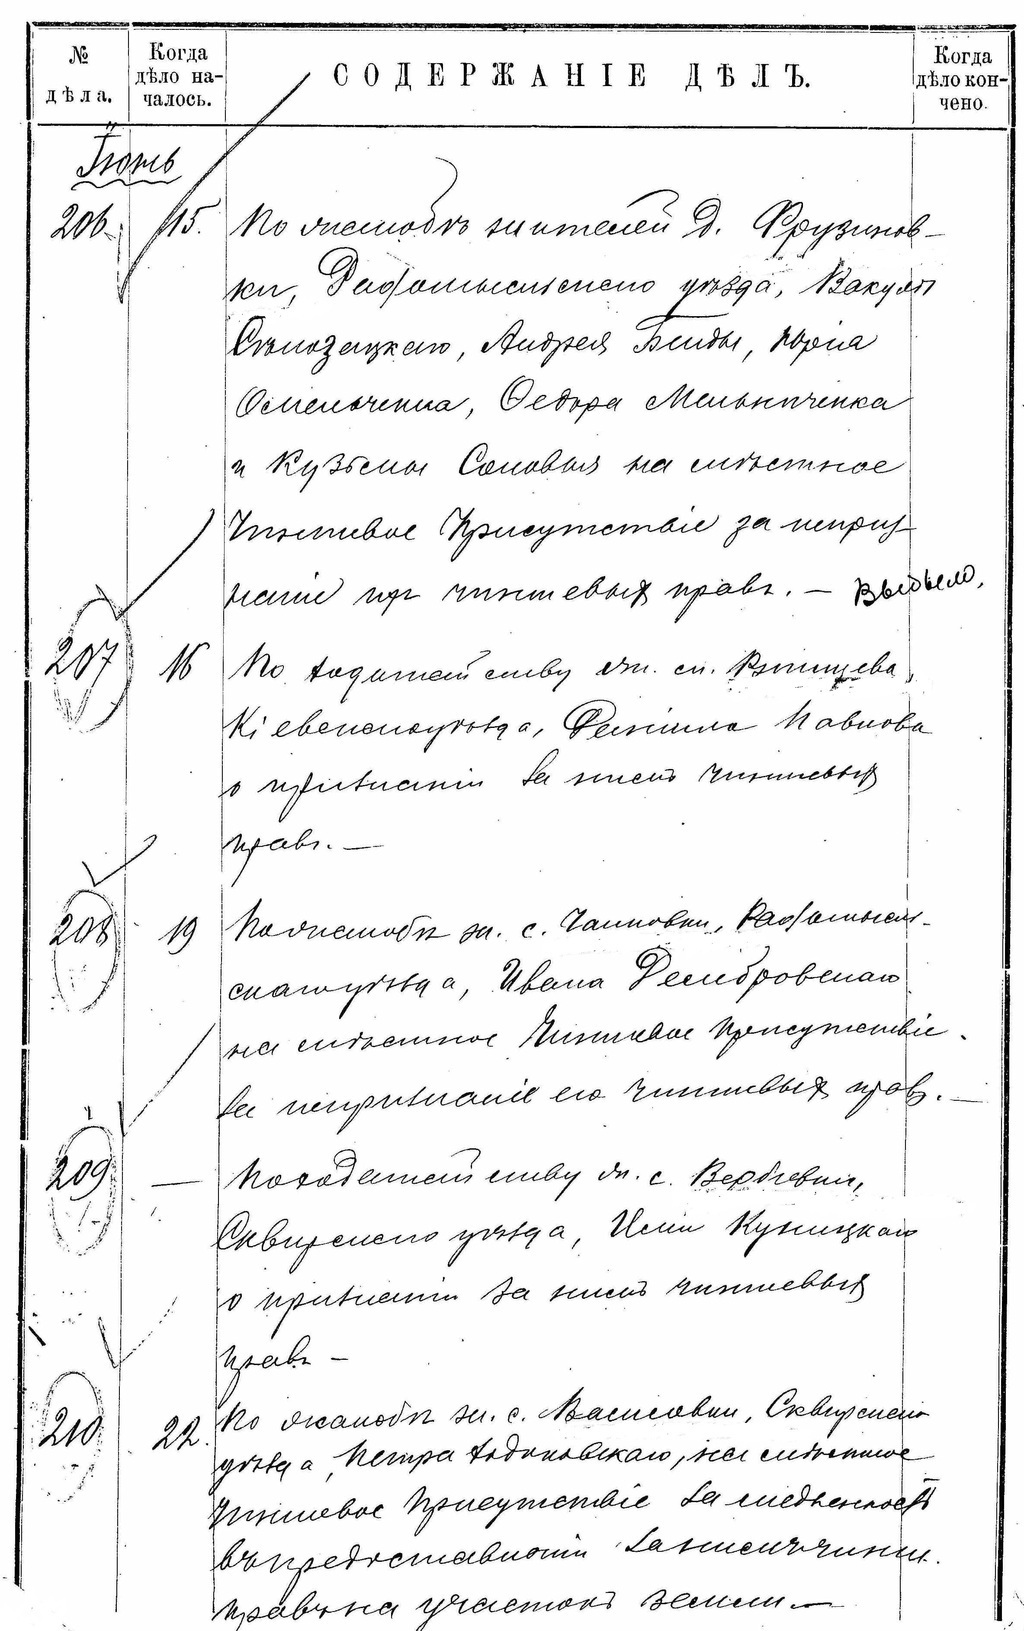 № дѣла.
Когда дѣло на-
чалось.
СОДЕРЖАНІЕ ДѢЛЪ.
Когда дѣло кон-
чено.
Іюнь
206. 15. По жалобѣ жителей д. Фрузинов-
ки, Радомысльскаго уѣзда, Вакулы
Андрея Биды, Юрія
Омельченка, Федора Мельниченка
и Кузьмы на мѣстное
Чиншевое Присутствіе за неприз-
наніе их чиншевыхъ правъ. —
207 16 По ходатайству жит. м.
Кіевскаго уѣзда, Павлова
о признаніи за нимъ чиншевыхъ
правъ. —
208 19 По жалобѣ ж. с. Радомысль-
скаго уѣзда, Ивана
на мѣстное Чиншевое Присутствіе
за непризнаніе его чиншевыхъ правъ. —
209 — По ходатайству ж. с. Вербовки,
Сквирскаго уѣзда, Куницкаго
о признаніи за нимъ чиншевыхъ
правъ —
210 22. По жалобѣ ж. с. Сквирскаго
уѣзда Петра Ходаковскаго, на мѣстное
Чиншевое Присутствіе за медленность
въ предоставленіи за нимъ чинш.
правъ на участокъ земли. —